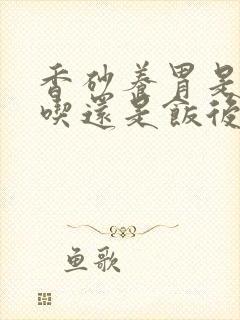 香砂養胃是
喫還是飯後
鱼歌